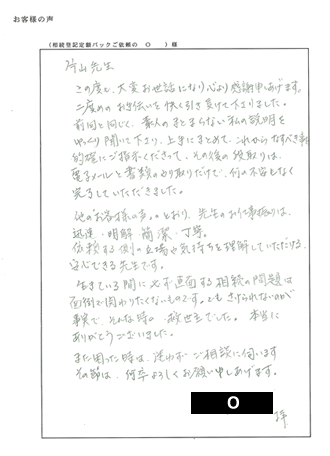 お客様の声
(相続登記定額パックご依頼の O ) 様
片山先生
この度も、大変お世話になり心より感謝申しあげます。
二度めのお手伝いを快く引き負けて下さりました。
前回と同じく、素人のまとまらない私の説明を
ゆっくり聞いて下さり、上手にまとめて、これからなすべき事
的確にご指示くださって、その後の段取りは、
電子メールと書類のやり取りだけで、何の不安もなく
完了していただきました。
他のお客様の声。のとおり、先生のお仕事振りは、
迅速・明解・簡潔・丁寧。
依頼する側の立場や気持ちを理解していただける、
安心できる先生です。
生きている間に必ず直面する相続の問題は
面倒で関わりたくないものです。でもさけられないのが
事実で、そんな時の救世主でした。本当に
ありがとうございました。
また困った時は、迷わずご相談に伺います
その節は、何卒よろしくお願い申しあげます。
O
拝